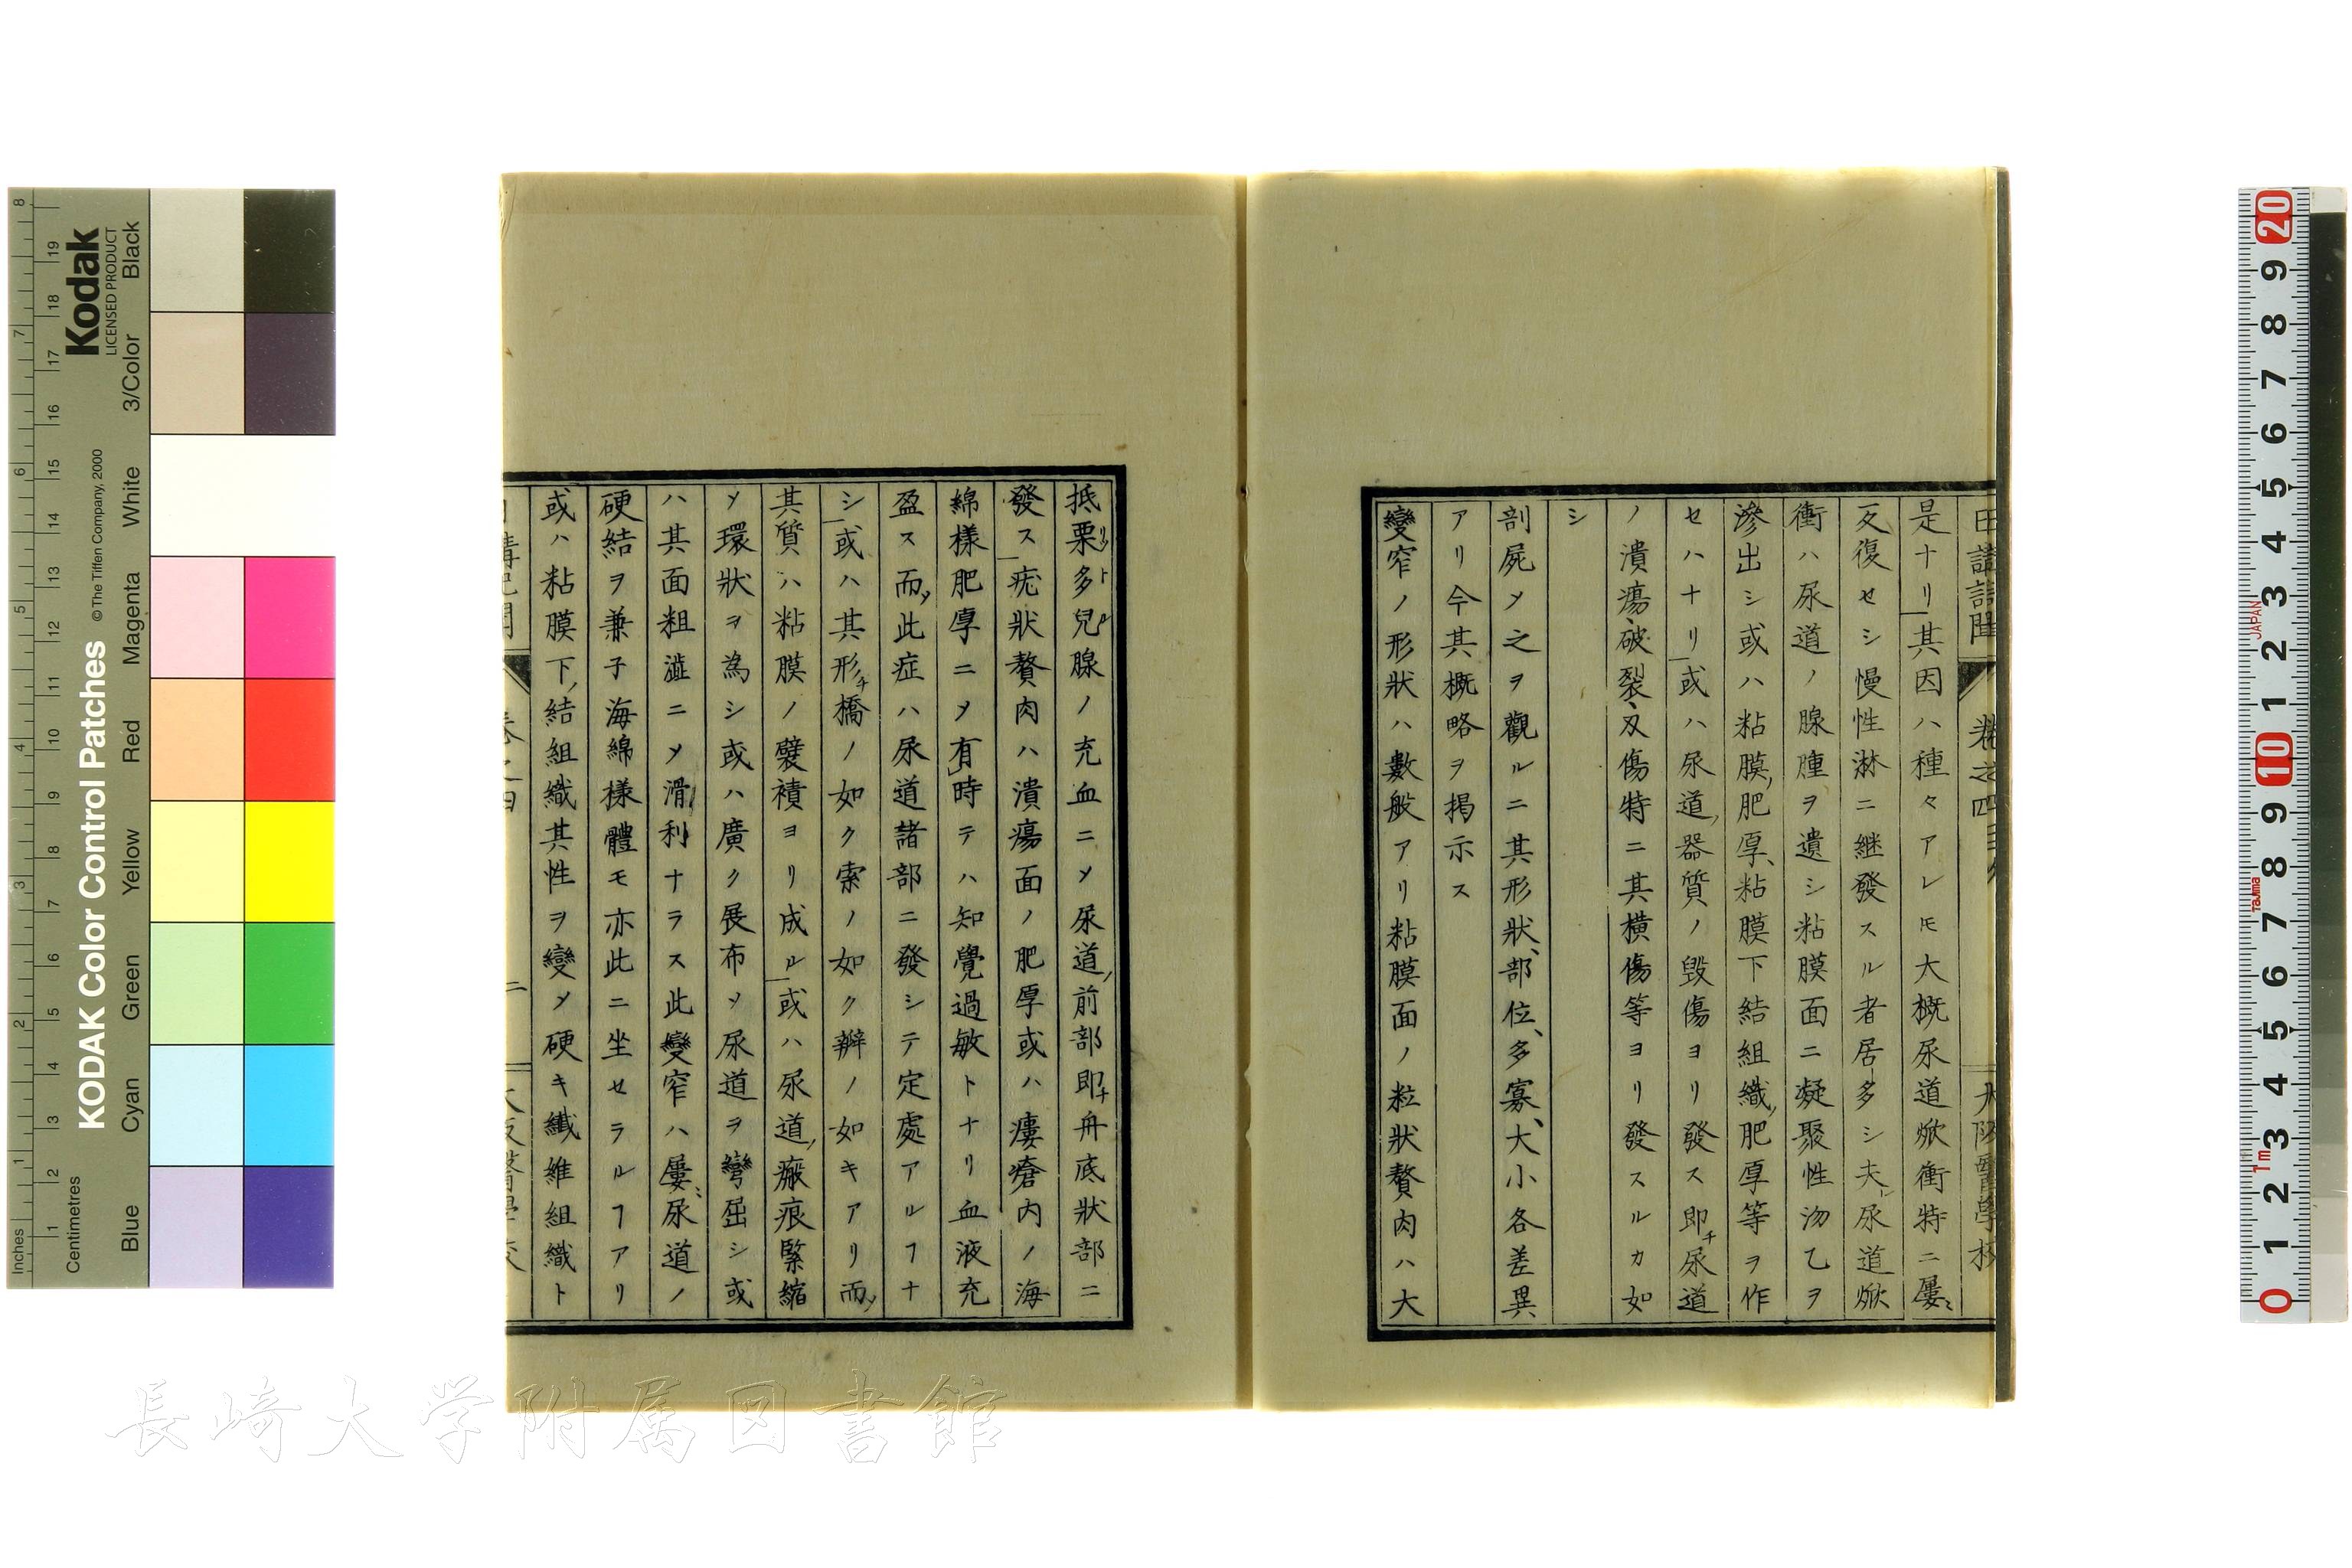 是ナリ其因ハ種々アレ𪜈大概尿道焮衝特ニ屢
反復セシ慢性淋ニ継發スル者居多シ夫レ尿道焮
衝ハ尿道ノ腺腫ヲ遺シ粘膜面ニ凝聚性沕乙ヲ
滲出シ或ハ粘膜ノ肥厚、粘膜下結組織ノ肥厚等ヲ作
セハナリ或ハ尿道ノ器質ノ毀傷ヨリ發ス即チ尿道
ノ潰瘍、破裂、刄傷特ニ其横傷等ヨリ發スルカ如
シ
剖屍〆之ヲ觀ルニ其形狀、部位、多寡、大小各差異
アリ今其概略ヲ掲示ス
變窄ノ形狀ハ數般アリ粘膜面ノ粒狀贅肉ハ大
抵栗多兒腺ノ充血ニ〆尿道ノ前部即チ舟底狀部ニ
發ス疣狀贅肉ハ潰瘍面ノ肥厚或ハ瘻瘡内ノ海
綿様肥厚ニ〆有時テハ知覺過敏トナリ血液充
盈ス而〆此症ハ尿道諸部ニ發シテ定處アルヿナ
シ或ハ其形チ橋ノ如ク索ノ如ク辨ノ如キアリ而〆
其質ハ粘膜ノ襞襀ヨリ成ル或ハ尿道ノ瘢痕緊縮
〆環狀ヲ為シ或ハ廣ク展布〆尿道ヲ彎屈シ或
ハ其面粗澁ニ〆滑利ナラス此變窄ハ屢尿道ノ
硬結ヲ兼子海綿樣體モ亦此ニ坐セラルヿアリ
或ハ粘膜下ノ結組織其性ヲ變〆硬キ纎維組織ト
巻之四
二
長崎大学附属図書館
Kodak
LICENSED PRODUCT
KODAK Color Control Patches
© The Tiffen Company, 2000
Inches
Centimetres
Blue
Cyan
Green
Yellow
Red
Magenta
White
3/Color
Black
JAPAN
Tajima
1m